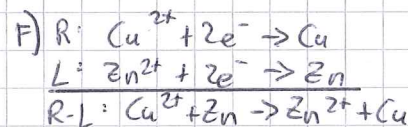 F) R: Cu²⁺ + 2e⁻ → Cu
L: Zn²⁺ + 2e⁻ → Zn
R-L: Cu²⁺ + Zn → Zn²⁺ + Cu